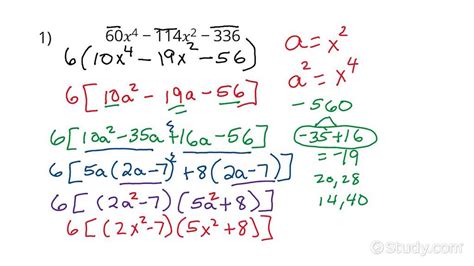 1) 60x⁴ − 114x² − 336
6(10x⁴ − 19x² − 56)
6[10a² − 19a − 56]
6[10a² − 35a + 16a − 56]
6[5a(2a − 7) + 8(2a − 7)]
6[(2a² − 7)(5a² + 8)]
6[(2x² − 7)(5x² + 8)]
a = x²
a² = x⁴
−560
−35 + 16
= −19
20, 28
14, 40
Study.com